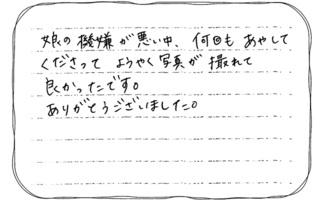 娘の機嫌が悪い中、何回もあやして
くださって ようやく写真が 撮れて
良かったです。
ありがとうございました。